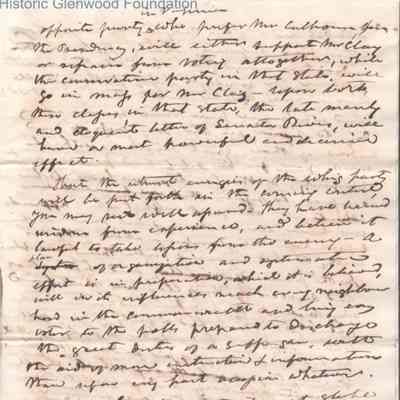 Historic Glenwood Foundation
in Virginia
opposite party, who prefer Mr Calhoun for
the Presidency, will either support Mr Clay
or refrain from voting altogether, while
the conservative party in that State, will
go in mass for Mr Clay – upon both
these classes in that state, the late manly
and eloquent letter of Senator Rives, will
have a most powerful and decisive
effect.
That the utmost energies of the whig party
will be put forth in the coming contest
you may rest well assured – They have learned
wisdom from experience, and believe it
lawful to take lessons from the enemy – A
plan of organization and systematic
effort is in preparation, which it is believed,
will in its influences reach every neighbour
hood in the commonwealth and bring every
voter to the polls prepared to discharge
the great duties of a suffragan, with
the aid of more instruction & information
than upon any past occasion whatever.